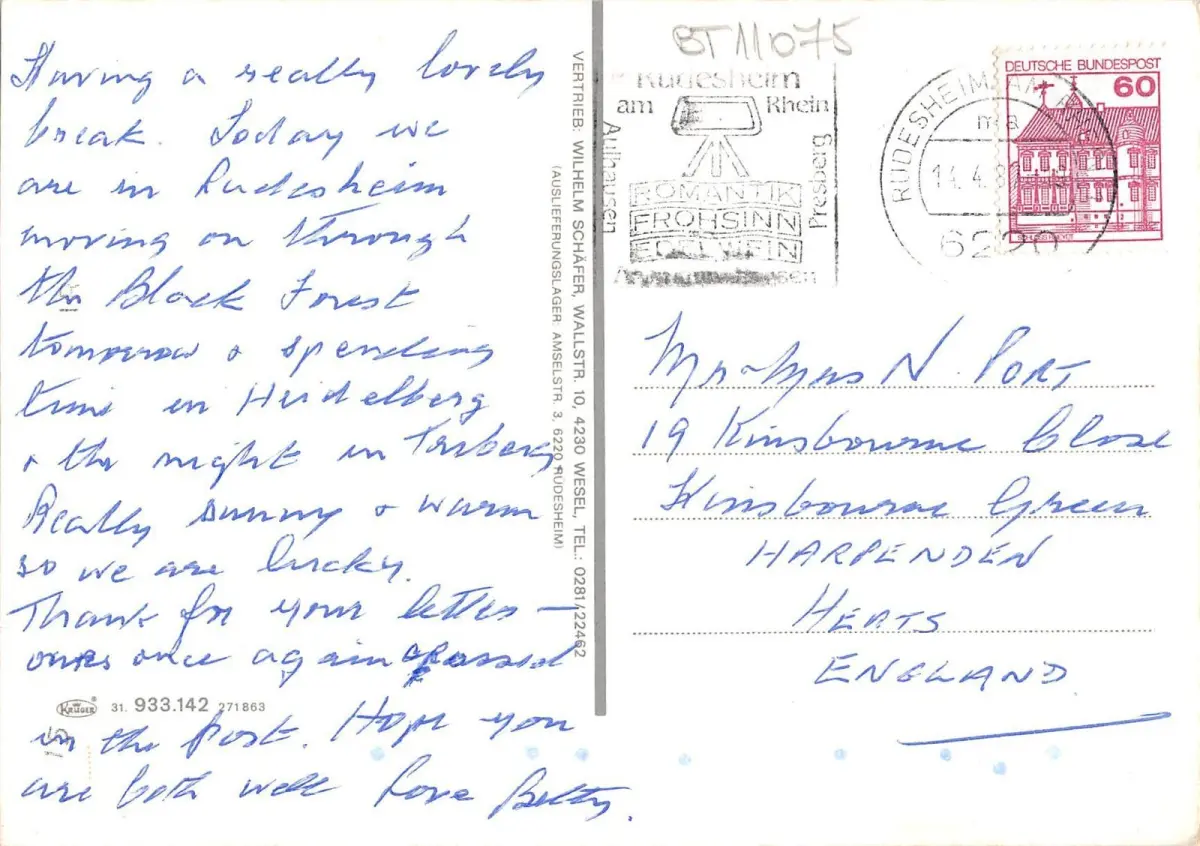 Having a really lovely
break. Today we
are in Rudesheim
moving on through
the Black Forest
tomorrow & spending
time in Heidelberg
& the night in
Really sunny & warm
so we are lucky.
Thank for your letter –
ours once again passed
in the post. Hope you
are both well Love Betty.
Krüger 31. 933.142 271863
15
VERTRIEB: WILHELM SCHÄFER, WALLSTR. 10, 4230 WESEL, TEL.: 0281/22462
(AUSLIEFERUNGSLAGER: AMSELSTR. 3, 6220 RÜDESHEIM)
BT111075
Rüdesheim
am Rhein
Aulhausen
Presberg
ROMANTIK
FROHSINN
EDELWEIN
RÜDESHEIM AM
ma
14.4.8
6220
DEUTSCHE BUNDESPOST
60
Mr & Mrs N. PORT
19 Kinsbourne Close
Kinsbourne Green
HARPENDEN
HERTS
ENGLAND